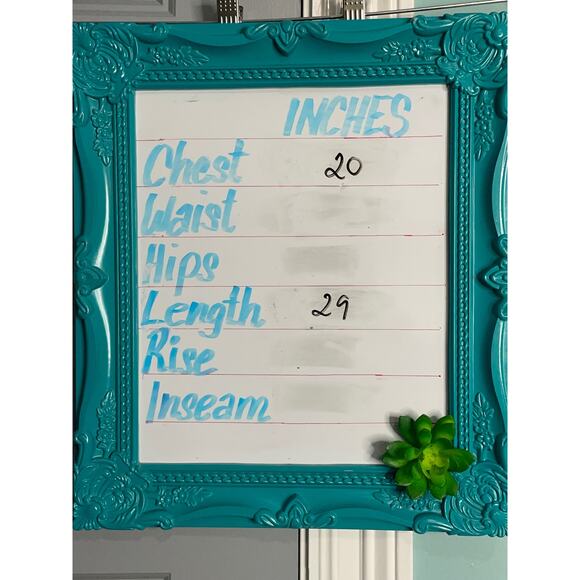 INCHES
Chest 20
Waist
Hips
Length 29
Rise
Inseam